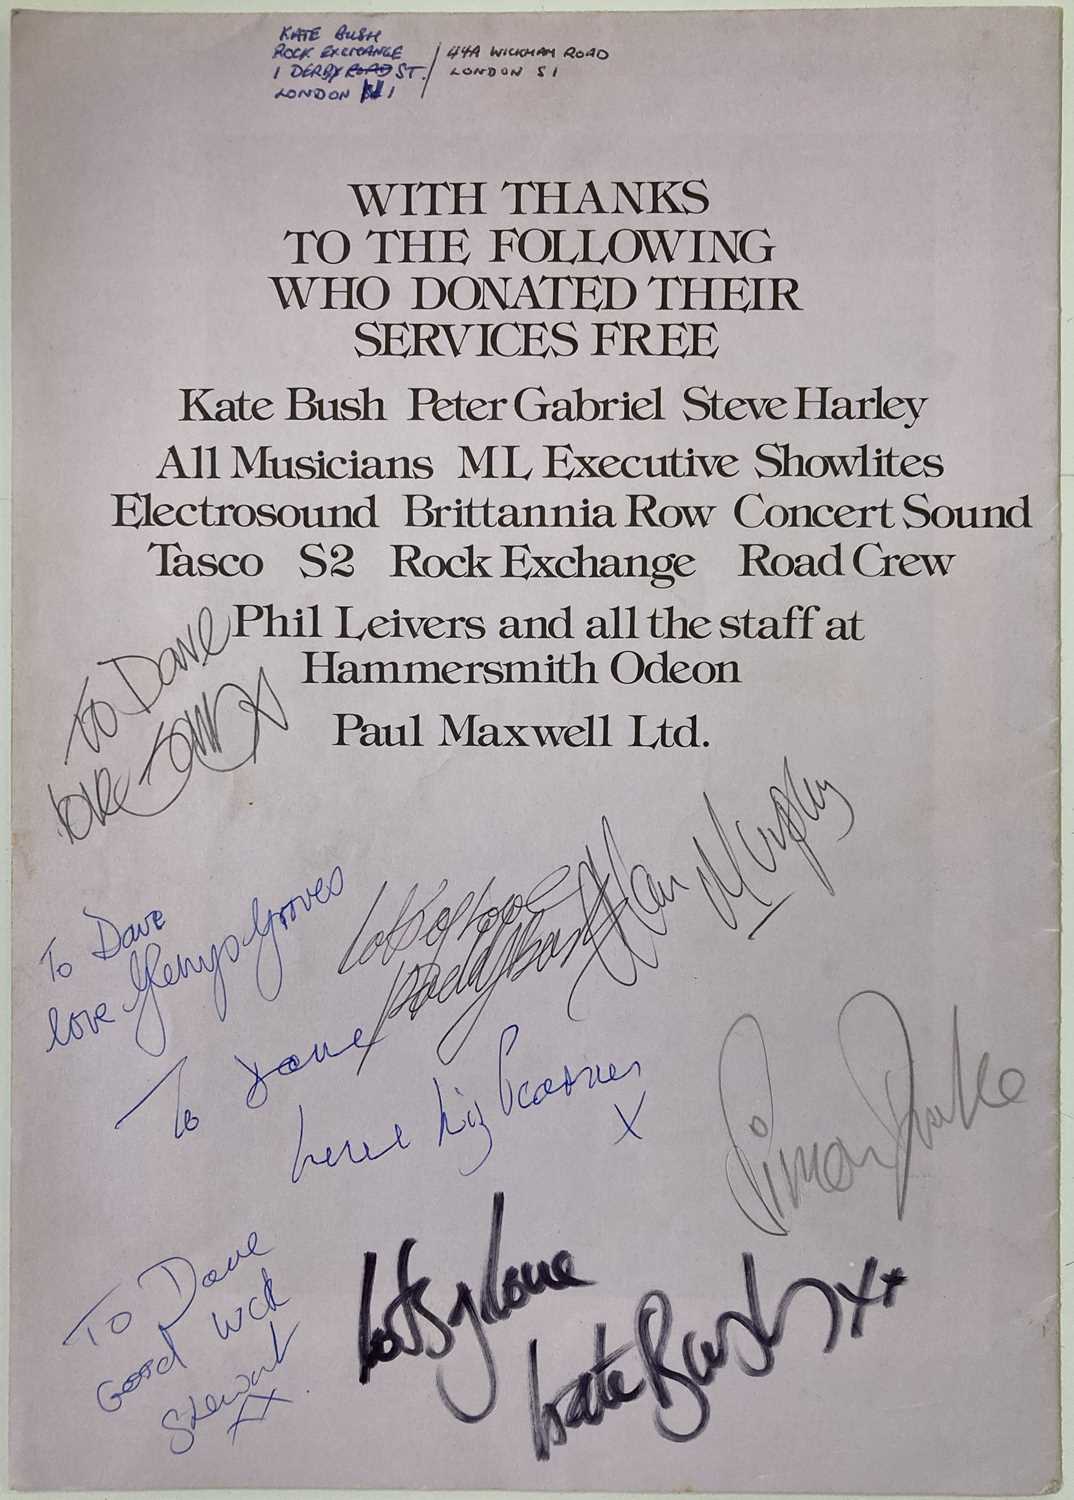 KATE BUSH
ROCK EXCHANGE
1 DERBY ROAD ST.
LONDON 1
44A WICKHAM ROAD
LONDON S1
WITH THANKS
TO THE FOLLOWING
WHO DONATED THEIR
SERVICES FREE
Kate Bush Peter Gabriel Steve Harley
All Musicians ML Executive Showlites
Electrosound Brittannia Row Concert Sound
Tasco S2 Rock Exchange Road Crew
Phil Leivers and all the staff at
Hammersmith Odeon
Paul Maxwell Ltd.
To Dave
love
Alan Murphy
To Dave
love Glenys Groves
Lots of love
Paddy Bush
To Dave
Love Liz Pearson
X
Simon Drake
To Dave
Good luck
Stewart
XX
Lots of Love
Kate Bush xx